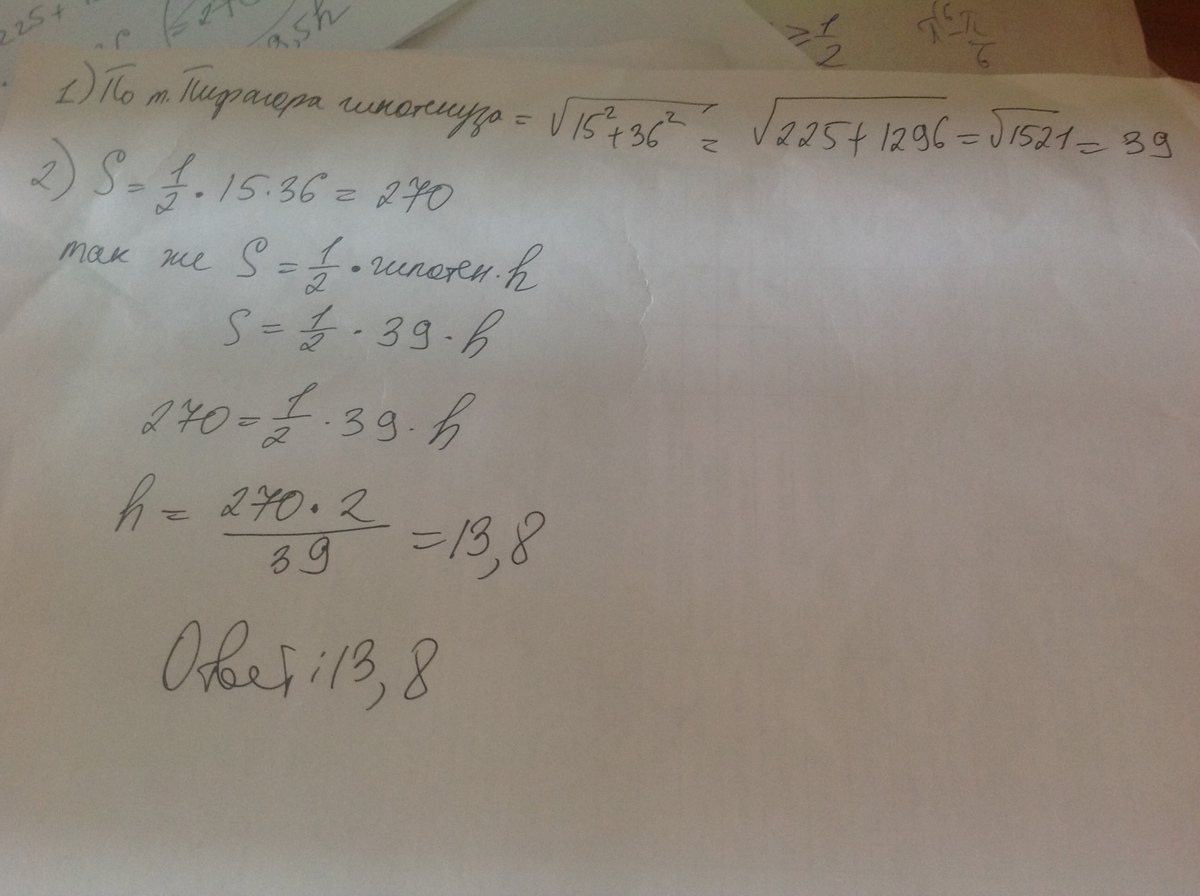 225+
≥ 1/2
π/6
1) По т. Пифагора гипотенуза = √15²+36² = √225+1296 = √1521 = 39
2) S = 1/2 · 15 · 36 = 270
так же S = 1/2 · гипотен. h
S = 1/2 · 39 · h
270 = 1/2 · 39 · h
h = 270 · 2 / 39 = 13,8
Ответ: 13,8